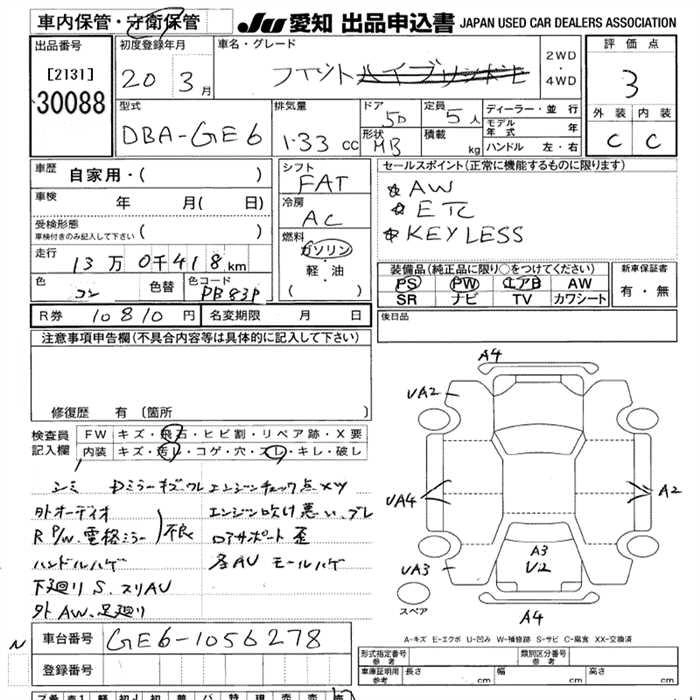 車内保管・守衛保管
JU 愛知 出品申込書 JAPAN USED CAR DEALERS ASSOCIATION
出品番号
[2131]
30088
初度登録年月
20 3月
車名・グレード
フィット ハイブリッド
2WD
・
4WD
評価点
3
外装 内装
C C
型式
DBA-GE6
排気量
1.33 cc
ドア
5D
定員
5人
形状
HB
積載
kg
ディーラー・並行
モデル年式 年
ハンドル 左・右
車歴
自家用・( )
車検
年 月( 日)
受検形態
車検付きのみ記入して下さい ( )
走行
13万0千418km
色
コン
色替
色コード
PB83P
シフト
FAT
冷房
AC
燃料
ガソリン
・
軽・油
( )
セールスポイント(正常に機能するものに限ります)
☆ AW
☆ ETC
☆ KEYLESS
装備品(純正品に限り○をつけてください)
PS PW エアB AW
SR ナビ TV カワシート
新車保証書
有・無
R券 10810円 名変期限 月 日
後日品
注意事項申告欄(不具合内容等は具体的に記入して下さい)
修復歴 有 〔箇所 〕
検査員
記入欄
FW キズ・飛石・ヒビ割・リペア跡・X要
内装 キズ・汚レ・コゲ・穴・スレ・キレ・破レ
シミ Dミラーキズ、ワレ エンジンチェック点メツ
外オーディオ エンジン吹け悪い、ブレ
R P/W、電格ミラー 不良 ロアサポート歪
ハンドルハゲ 各AU モールハゲ
下廻りS、スリAU
外AW、足廻り
A4
UA2
UA4
A2
A3
U2
UA3
A4
スペア
A-キズ E-エクボ U-凹み W-補修跡 S-サビ C-腐食 XX-交換済
N
車台番号 GE6-1056278
登録番号
形式指定番号
参考
類別区分番号
参考
車庫証明用
参考
長さ cm 幅 cm 高さ cm